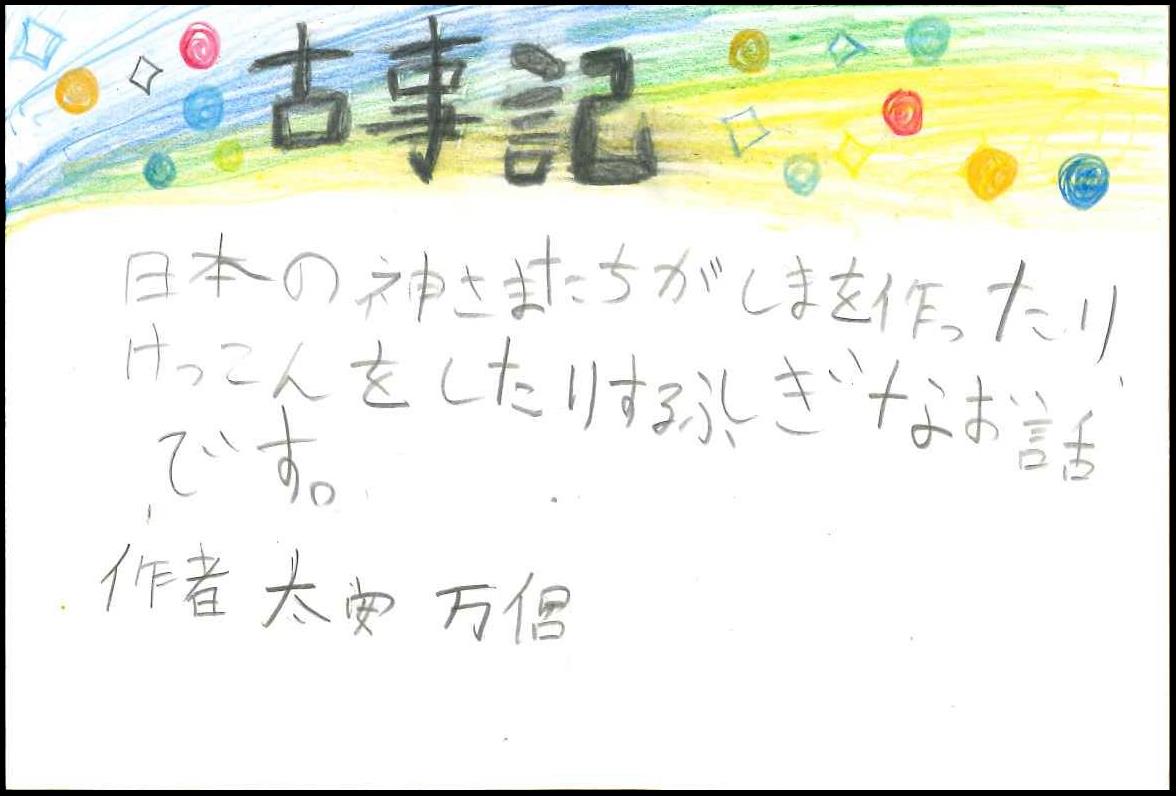 古事記
日本の神さまたちがしまを作ったり
けっこんをしたりするふしぎなお話
です。
作者 太安万侶